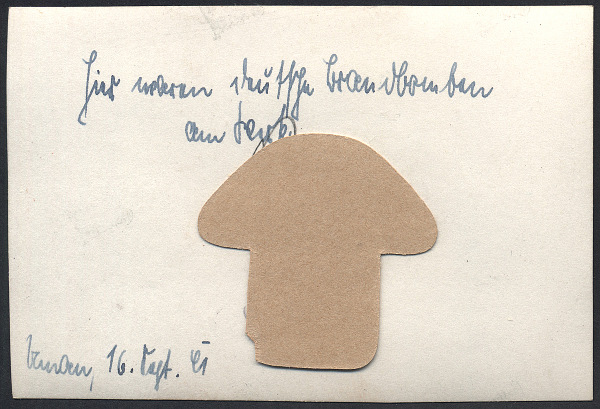 Hier waren deutsche Brandbomben
am Werk.
16. Sept. 41